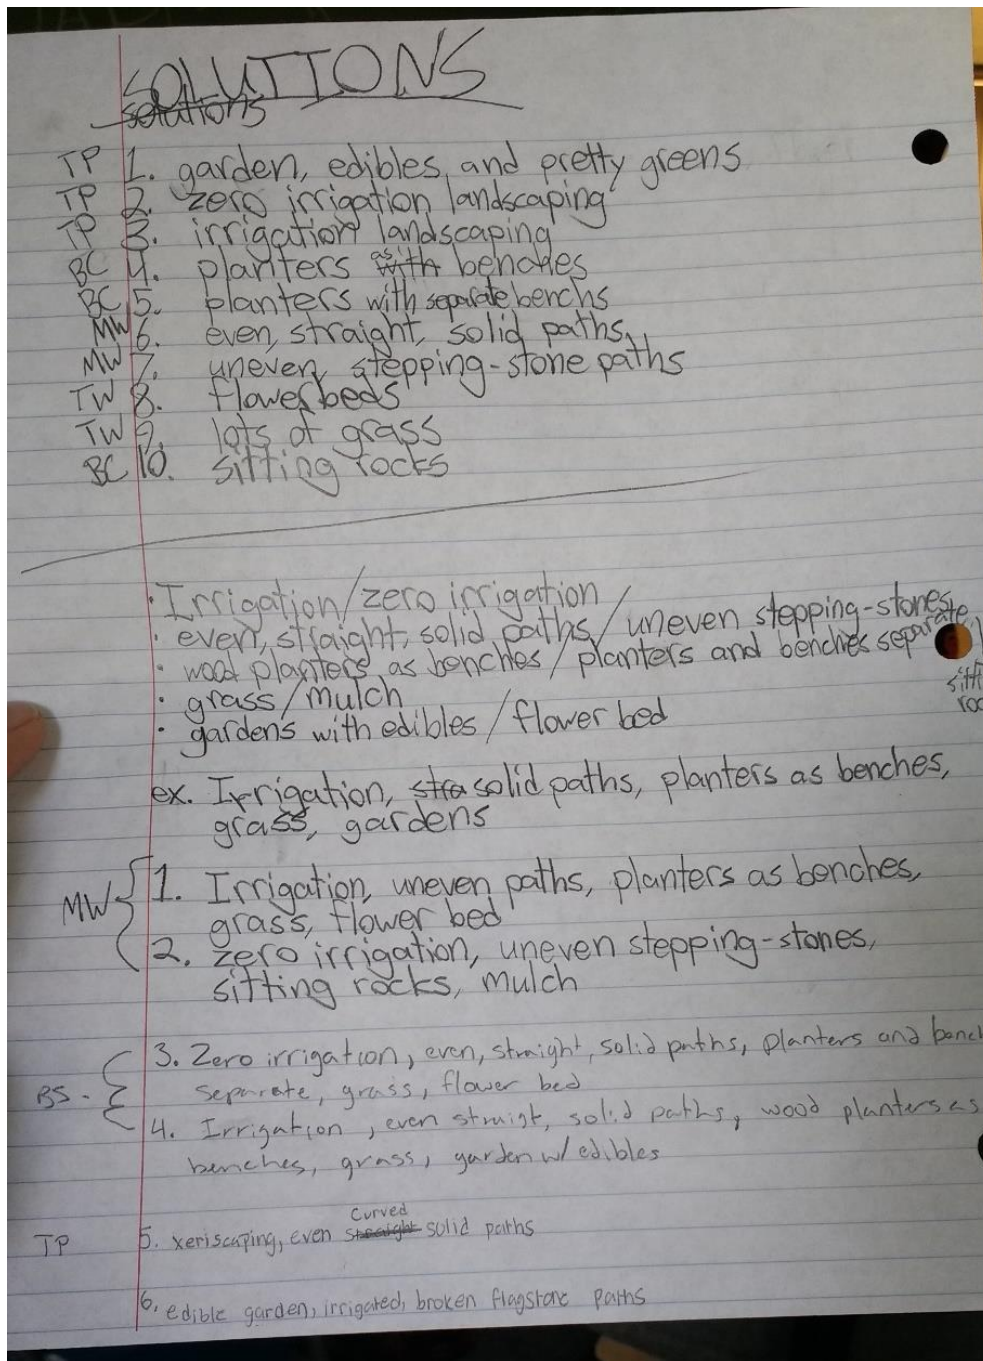 SOLUTIONS
solutions
TP 1. garden, edibles, and pretty greens
TP 2. zero irrigation landscaping
TP 3. irrigation landscaping
BC 4. planters as with benches
BC 5. planters with separate benchs
MW 6. even, straight, solid paths,
MW 7. uneven, stepping-stone paths
TW 8. flowerbeds
TW 9. lots of grass
BC 10. sitting rocks
· Irrigation/zero irrigation
· even, straight, solid paths/uneven stepping-stones
· wood planters as benches/planters and benches separate
· grass/mulch
· gardens with edibles/flower bed
ex. Irrigation, stra solid paths, planters as benches,
grass, gardens
MW { 1. Irrigation, uneven paths, planters as benches,
grass, flower bed
2. zero irrigation, uneven stepping-stones,
sitting rocks, mulch
3. Zero irrigation, even, straight, solid paths, planters and
BS - { separate, grass, flower bed
4. Irrigation, even straigt, solid paths, wood planters as
benches, grass, garden w/ edibles
TP 5. xeriscaping, even straight Curved solid paths
6. edible garden, irrigated, broken flagstone paths